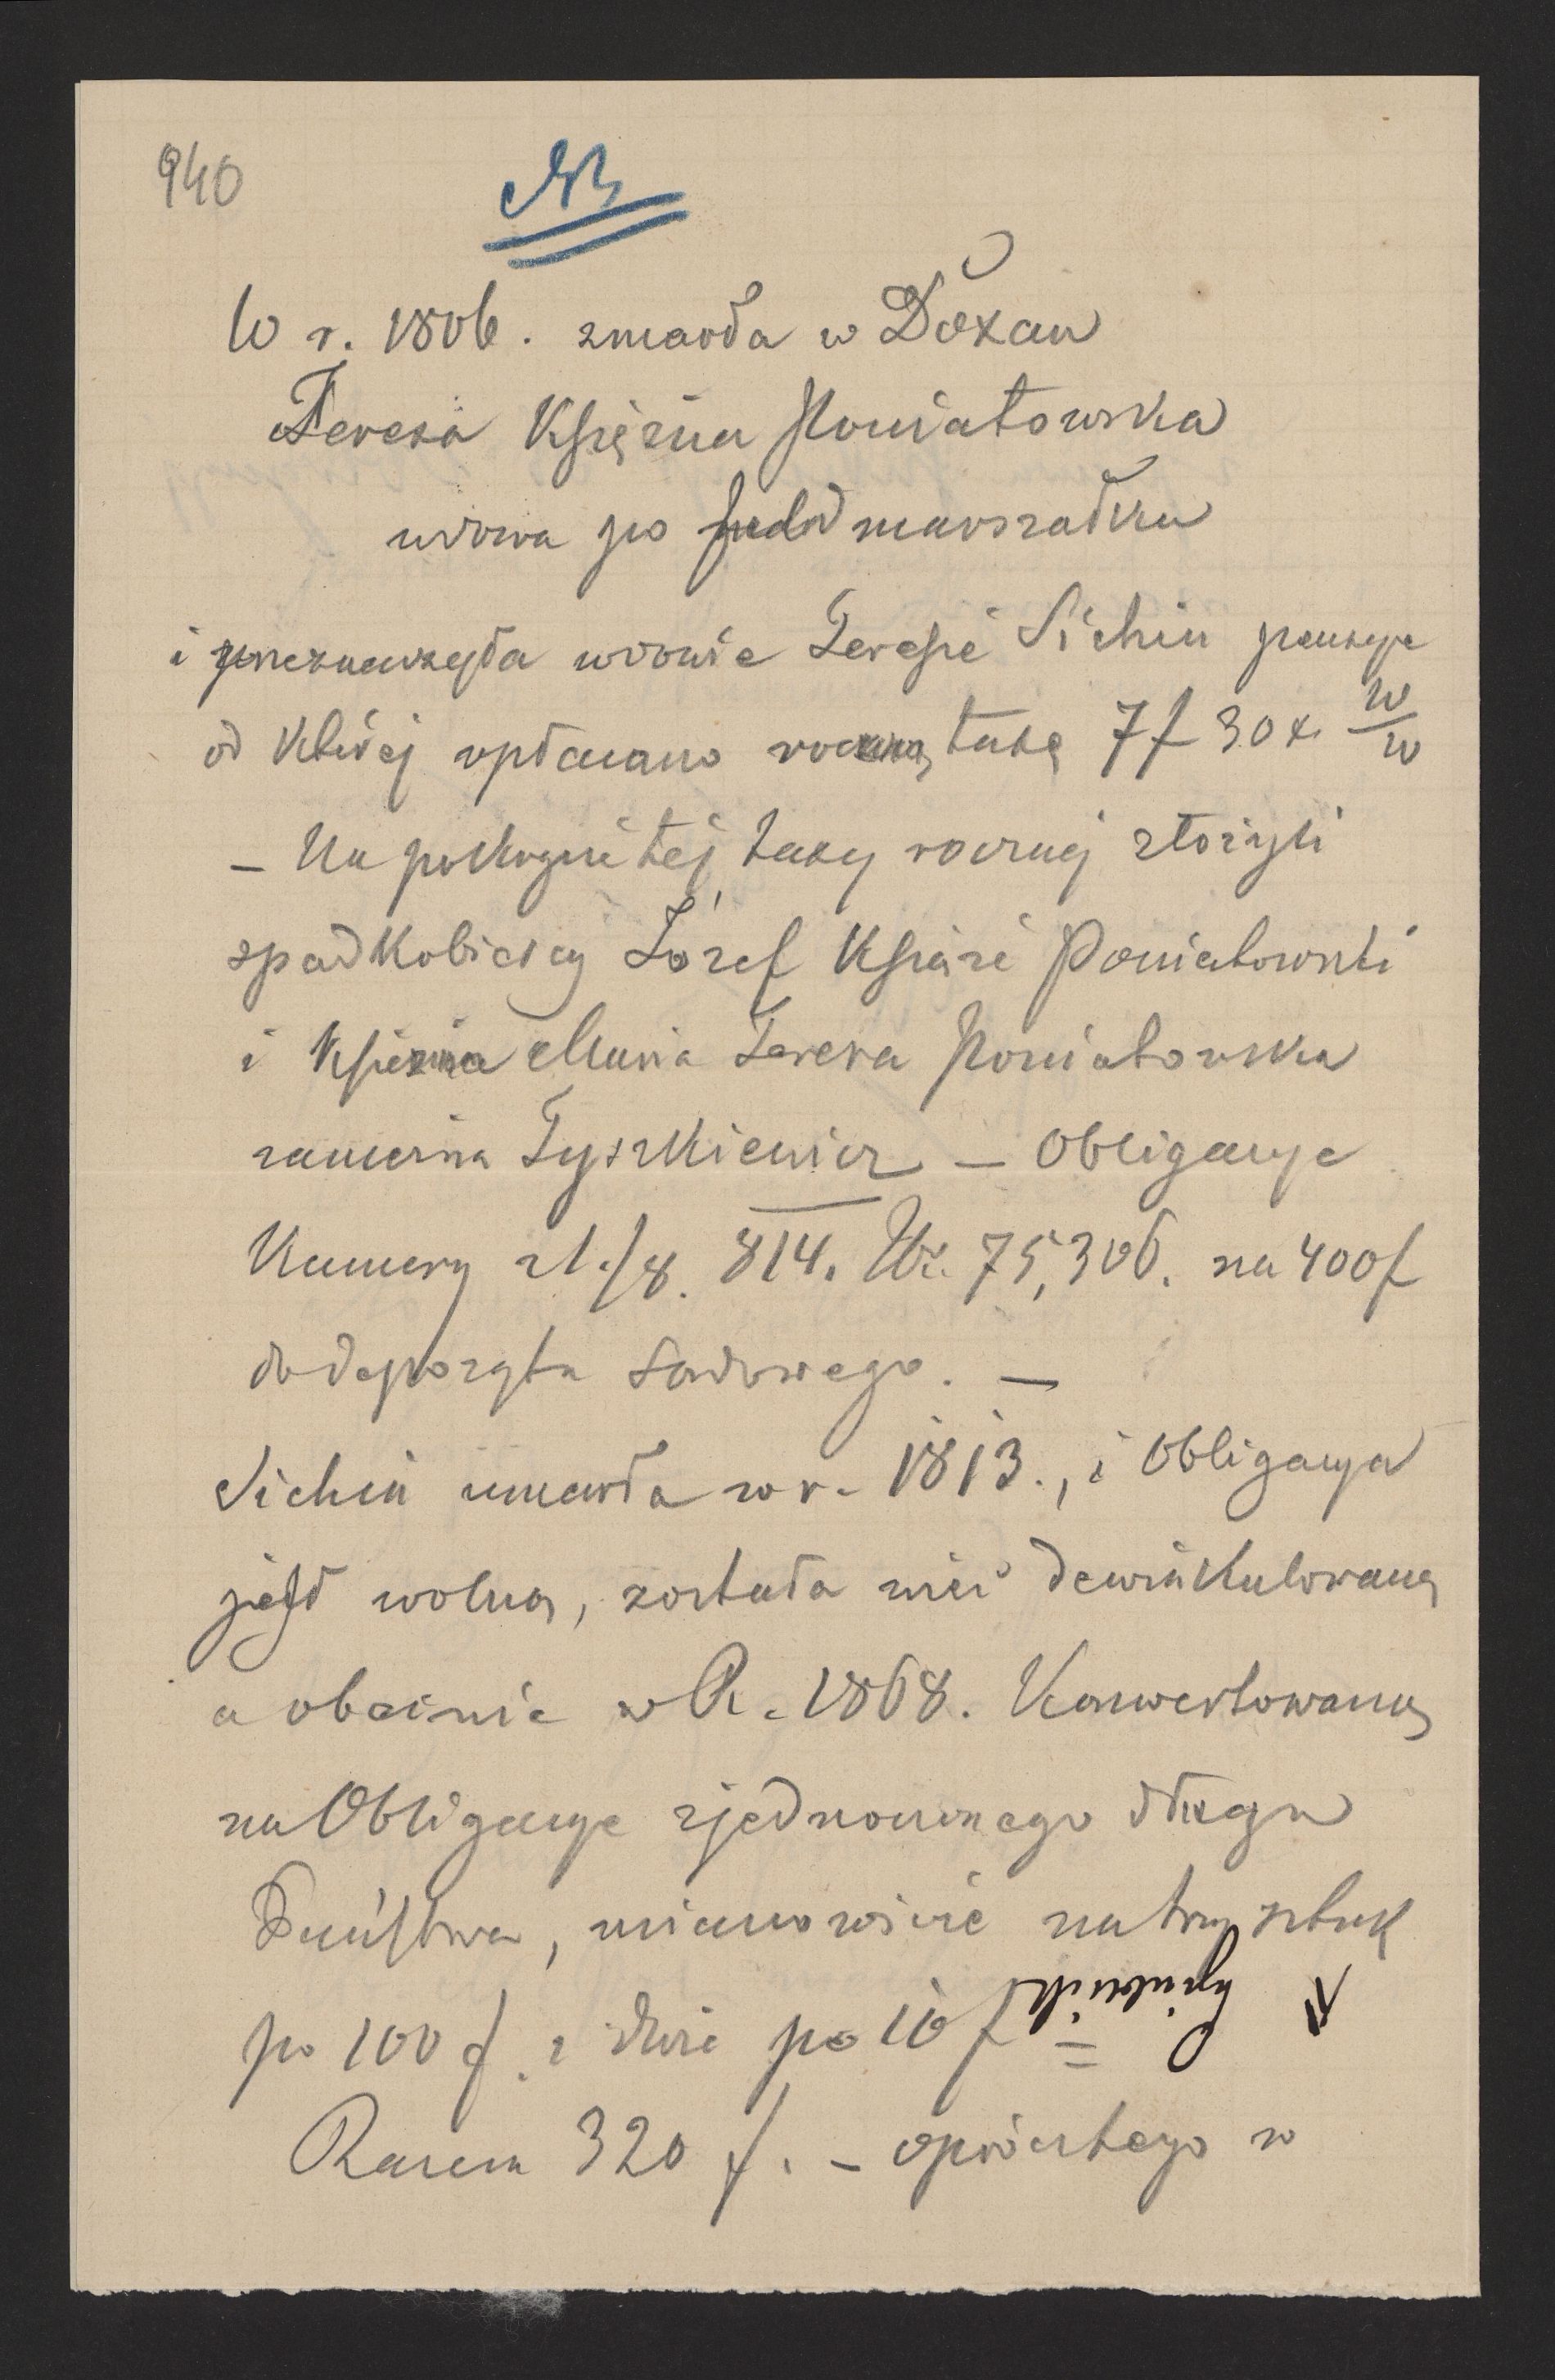 940
NB
W r. 1806. zmarła w Doxan
Teresa Księżna Poniatowska
wdowa po feldmarszałku
i przeznaczyła wdowie Teresie Sichin pensye
od której opłacano roczną taxę 7 f 30 x. W/W
– Na pokrycie tej taxy rocznej złożyli
spadkobiercy Józef Książe Poniatowski
i Księżna Marya Teresa Poniatowska
zamężna Tyszkiewicz – Obligacye
Kamery 21./8. 814. Nr. 75,306. na 400 f
do depozytu sądowego. –
Sichin umarła w r. 1813., i Obligacya
jest wolną, została więc dewinkulowaną
a obecnie w R. 1868. Konwertowaną
na Obligacye zjednoczonego długu
Państwa, mianowicie na trzy sztuk
po 100 f. i dwie po 10 f =
Razem 320 f. – oprócz tego w